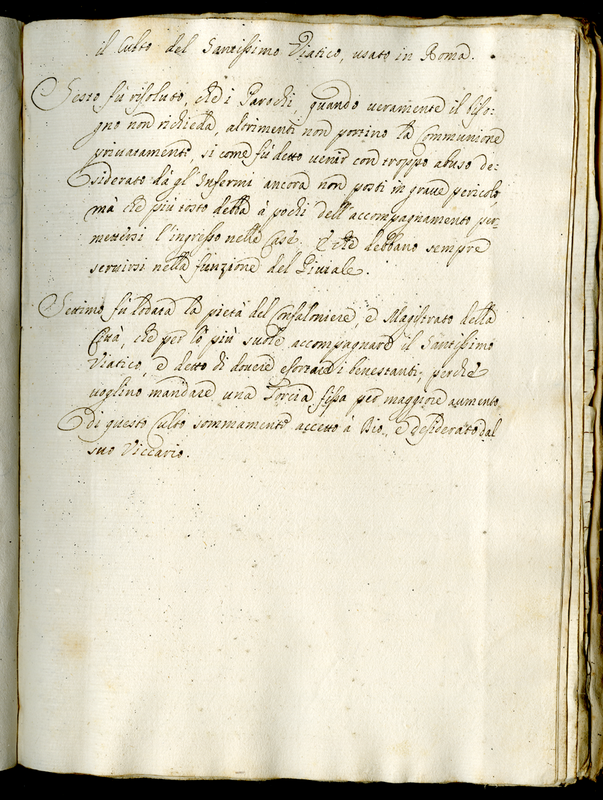 il Culto del Santissimo Viatico, usato in Roma.
Sesto fù risoluto, che i Parochi, quando veramente il biso:
gno non richieda, altrimenti non portino la Communione
privatamente, si come fù detto venir con troppo abuso de:
siderato dà gl'Infermi ancora non posti in grave pericolo
mà che più tosto debba à pochi dell'accompagnamento per:
mettersi l'ingresso nelle Case: E che debbano sempre
servirsi nella funzione del Piviale.
Settimo fù lodata la pietà del Confaloniere, e Magistrato della
Città, che per lo più suole accompagnare il Santissimo
Viatico, e detto di dovere esortare i benestanti, perche
voglino mandare una Torcia fissa per maggiore aumento
di questo Culto sommamente accetto à Dio, e desiderato dal
suo Viccario.